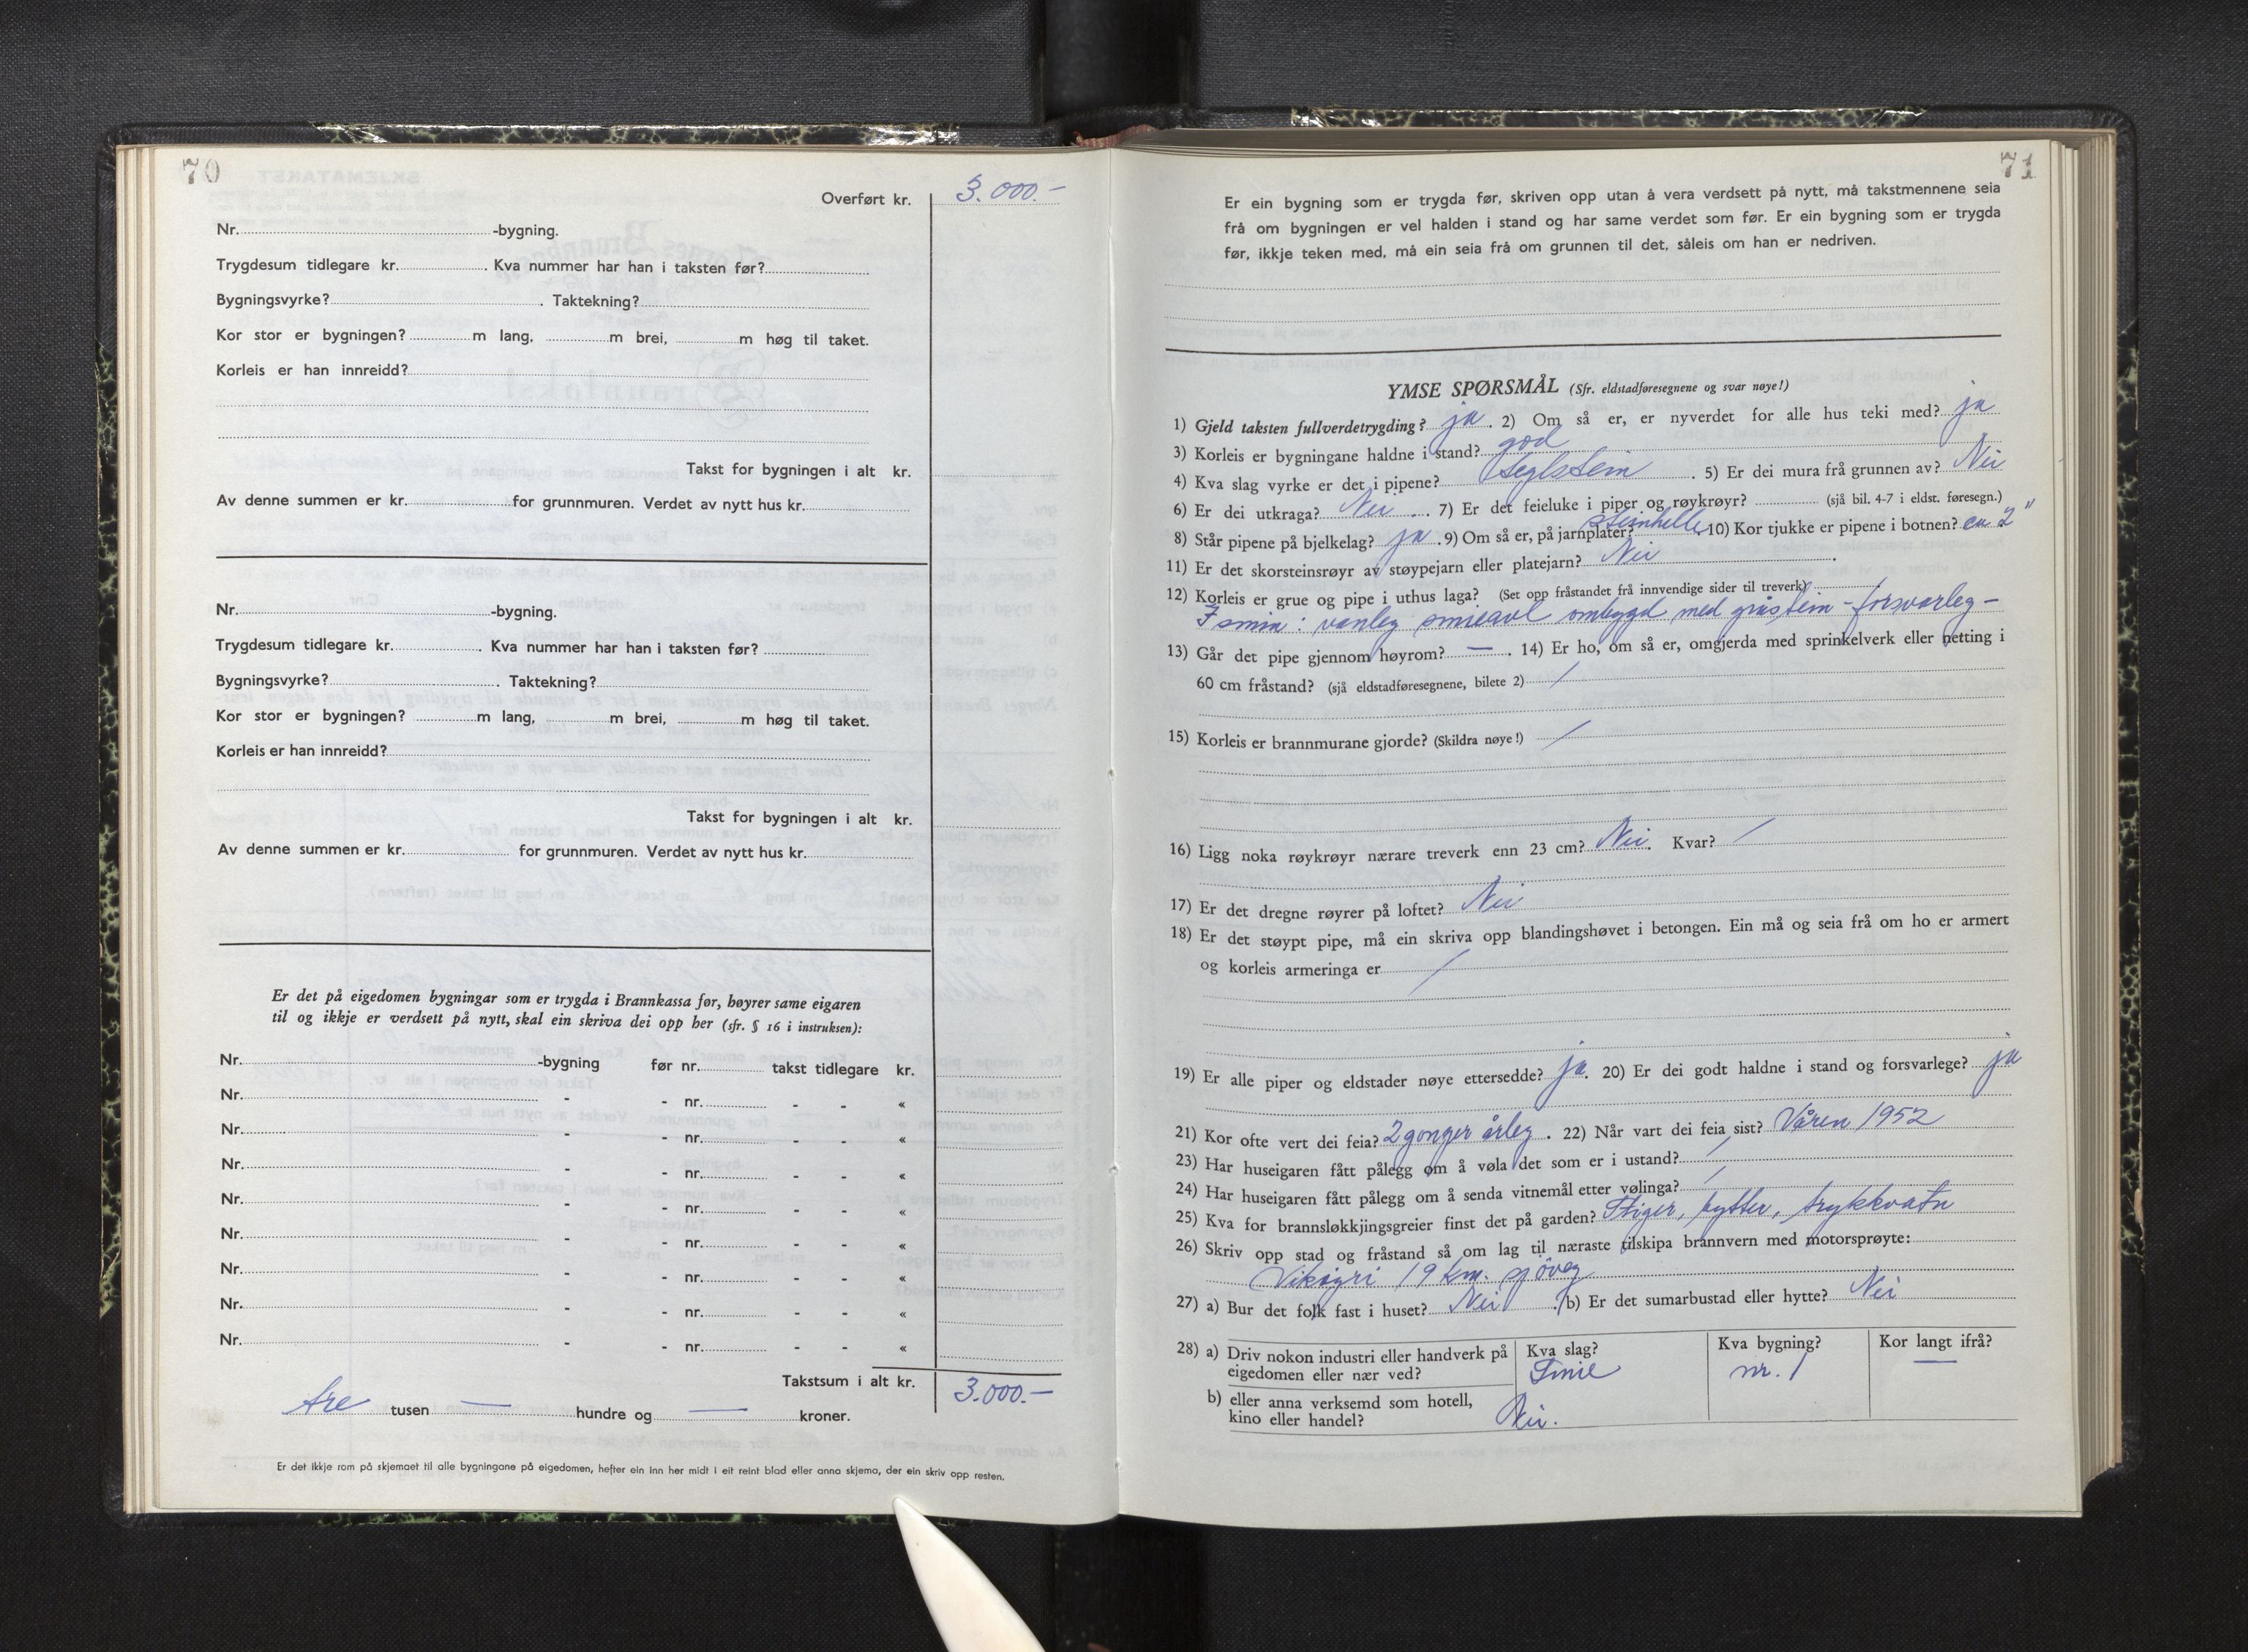 70
Overført kr. 3.000.-
Nr. -bygning.
Trygdesum tidlegare kr. . Kva nummer har han i taksten før?
Bygningsvyrke? . Taktekning?
Kor stor er bygningen? m lang, m brei, m høg til taket.
Korleis er han innreidd?
Takst for bygningen i alt kr.
Av denne summen er kr. for grunnmuren. Verdet av nytt hus kr.
Nr. -bygning.
Trygdesum tidlegare kr. . Kva nummer har han i taksten før?
Bygningsvyrke? . Taktekning?
Kor stor er bygningen? m lang, m brei, m høg til taket.
Korleis er han innreidd?
Takst for bygningen i alt kr.
Av denne summen er kr. for grunnmuren. Verdet av nytt hus kr.
Er det på eigedomen bygningar som er trygda i Brannkassa før, høyrer same eigaren
til og ikkje er verdsett på nytt, skal ein skriva dei opp her (sfr. § 16 i instruksen):
Nr. -bygning før nr. takst tidlegare kr.
Nr. - - nr. - - «
Nr. - - nr. - - «
Nr. - - nr. - - «
Nr. - - nr. - - «
Nr. - - nr. - - «
Nr. - - nr. - - «
Nr. - - nr. - - «
Nr. - - nr. - - «
Takstsum i alt kr. 3.000.-
tre tusen — hundre og — kroner.
Er det ikkje rom på skjemaet til alle bygningane på eigedomen, hefter ein inn her midt i eit reint blad eller anna skjema, der ein skriv opp resten.
71
Er ein bygning som er trygda før, skriven opp utan å vera verdsett på nytt, må takstmennene seia
frå om bygningen er vel halden i stand og har same verdet som før. Er ein bygning som er trygda
før, ikkje teken med, må ein seia frå om grunnen til det, såleis om han er nedriven.
YMSE SPØRSMÅL (Sfr. eldstadføresegnene og svar nøye!)
1) Gjeld taksten fullverdetrygding? ja . 2) Om så er, er nyverdet for alle hus teki med? ja
3) Korleis er bygningane haldne i stand? god
4) Kva slag vyrke er det i pipene? teglstein . 5) Er dei mura frå grunnen av? Nei
6) Er dei utkraga? Nei . 7) Er det feieluke i piper og røykrøyr? (sjå bil. 4-7 i eldst. føresegn.)
8) Står pipene på bjelkelag? ja . 9) Om så er, på jarnplater? steinhelle . 10) Kor tjukke er pipene i botnen? ca 2"
11) Er det skorsteinsrøyr av støypejarn eller platejarn? Nei .
12) Korleis er grue og pipe i uthus laga? (Set opp fråstandet frå innvendige sider til treverk)
I smia: vanleg smieavl ombygd med gråstein - forsvarleg -
13) Går det pipe gjennom høyrom? — . 14) Er ho, om så er, omgjerda med sprinkelverk eller netting i
60 cm fråstand? (sjå eldstadføresegnene, bilete 2) /
15) Korleis er brannmurane gjorde? (Skildra nøye!) /
16) Ligg noka røykrøyr nærare treverk enn 23 cm? Nei. Kvar? /
17) Er det dregne røyrer på loftet? Nei
18) Er det støypt pipe, må ein skriva opp blandingshøvet i betongen. Ein må og seia frå om ho er armert
og korleis armeringa er /
19) Er alle piper og eldstader nøye ettersedde? ja. 20) Er dei godt haldne i stand og forsvarlege? ja
21) Kor ofte vert dei feia? 2 gonger årleg . 22) Når vart dei feia sist? Våren 1952
23) Har huseigaren fått pålegg om å vøla det som er i ustand? /
24) Har huseigaren fått pålegg om å senda vitnemål etter vølinga? /
25) Kva for brannsløkkjingsgreier finst det på garden? Stiger, bytter, trykkvatn
26) Skriv opp stad og fråstand så om lag til næraste tilskipa brannvern med motorsprøyte:
Vikøyri 19 km. sjöveg
27) a) Bur det folk fast i huset? Nei . b) Er det sumarbustad eller hytte? Nei
28) a) Driv nokon industri eller handverk på Kva slag? Kva bygning? Kor langt ifrå?
eigedomen eller nær ved? Smie nr. 1 —
b) eller anna verksemd som hotell,
kino eller handel? Nei.